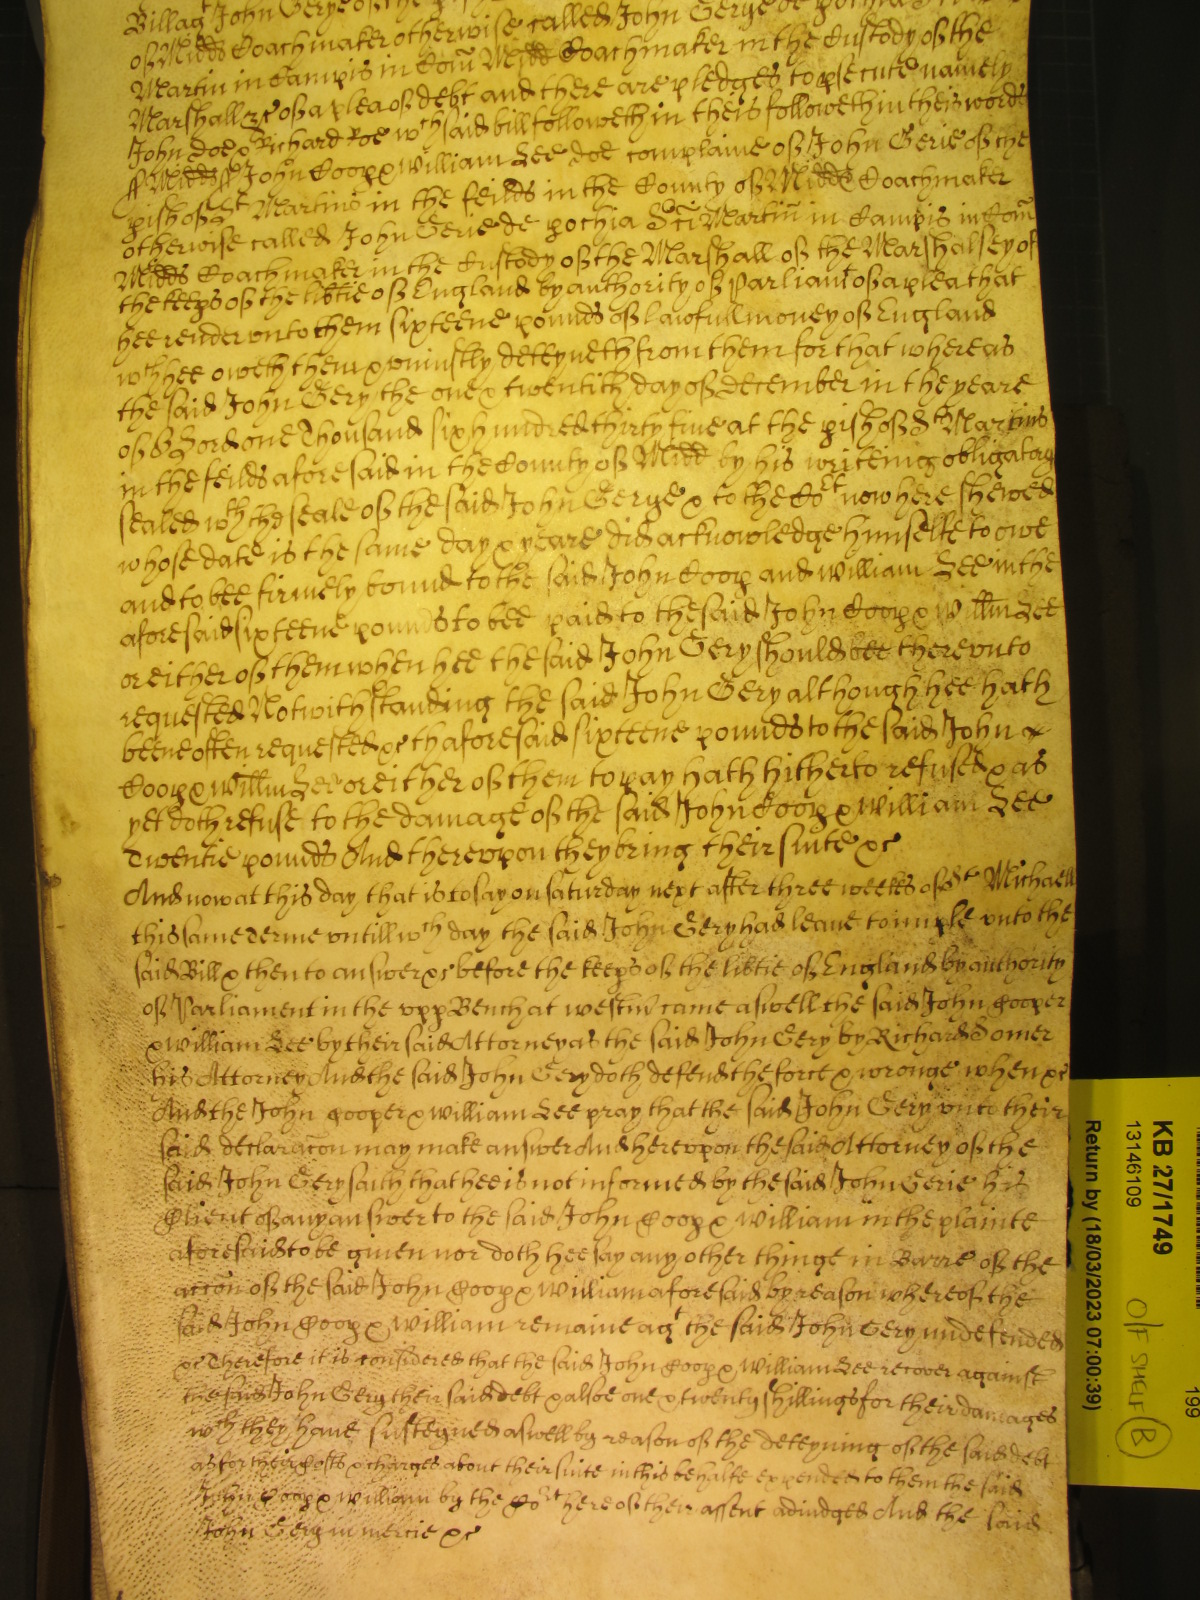 Billa agt John Gerye of the
of Midds Coachmaker otherwise called John Gerye de pochia
Martin in Campis in Com Midd Coachmaker in the Custody of the
Marshall &c of a plea of debt and there are pledges to psecute namely
John Doe & Richard Roe wch said bill followeth in theis followeth in theis words
ss Midds ss John Coop & William Lee doe complaine of John Gerie of the
pish of St Martins in the feilds in the County of Midds Coachmaker
otherwise called John Gerie de pochia Sci Martin in Campis in Com
Midds Coachmaker in the Custody of the Marshall of the Marshalsey of
the keeps of the libtie of England by authority of Parliamt of a plea that
hee render unto them sixteene pounds of lawfull money of England
wch hee oweth them & uniustly deteyneth from them for that whereas
the said John Gery the one & twentith day of december in the yeare
of or Lord one Thousand six hundred thirty five at the pish of St Martins
in the feilds aforesaid in the County of Midd by his writeing obligatory
sealed wth the seale of the said John Gerye & to the Cort now here shewed
whose date is the same day & yeare did acknowledge himselfe to owe
and to bee firmely bound to the said John Coop and William Lee in the
aforesaid sixteene pounds to bee paid to the said John Coop & Willm Lee
or either of them when hee the said John Gery should bee thereunto
requested Notwithstanding the said John Gery although hee hath
beene often requested &c thaforesaid sixteene pounds to the said John
Coop & Willm Lee or either of them to pay hath hitherto refused & as
yet doth refuse to the damage of the said John Coop & William Lee
Twentie pounds And thereupon they bring their suite &c
And now at this day that is to say on saturday next after three weeks of St Michaell
this same Terme untill wch day the said John Gery had leave to imple unto the
said Bill & then to answer &c before the keeps of the libtie of England by authority
of Parliament in the upp Bench at westm came aswell the said John Cooper
& William Lee by their said Attorney as the said John Gery by Richard Somer
his Attorney And the said John Gery doth defend the force & wronge when &c
And the John Cooper & William Lee pray that the said John Gery unto their
said declaracon may make answer And hereupon the said Attorney of the
said John Gery saith that hee is not informed by the said John Gerie his
Client of any answer to the said John Coop & William in the plainte
aforesaid to be given nor doth hee say any other thinge in Barre of the
accon of the said John Coop & William aforesaid by reason whereof the
said John Coop & William remaine agt the said John Gery undefended
&c Therefore it is considered that the said John Coop & William Lee recover against
the said John Gery their said debt & alsoe one & twenty shillings for their damages
wch they have susteyned aswell by reason of the deteyning of the said debt
as for their Costs & charges about their suite in this behalfe expended to them the said
John Coop & William by the Cort here of their assent adiudged And the said
John Gery in mercie &c
199
KB 27/1749
13146109
Return by (18/03/2023 07:00:39)
O/F SHELF B